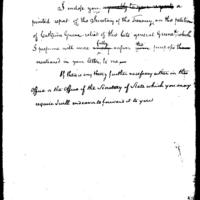 I inclose you a
printed report of the Secretary of the Treasury, on the petition
of Catharine Greene relict of the late general Greene, which
I presume will more fully answer the purposes
mentioned in your letter, to me
If there is any thing further necessary either in this
Office or the Office of the Secretary of State which you may
require I will endeavor to forward it to you